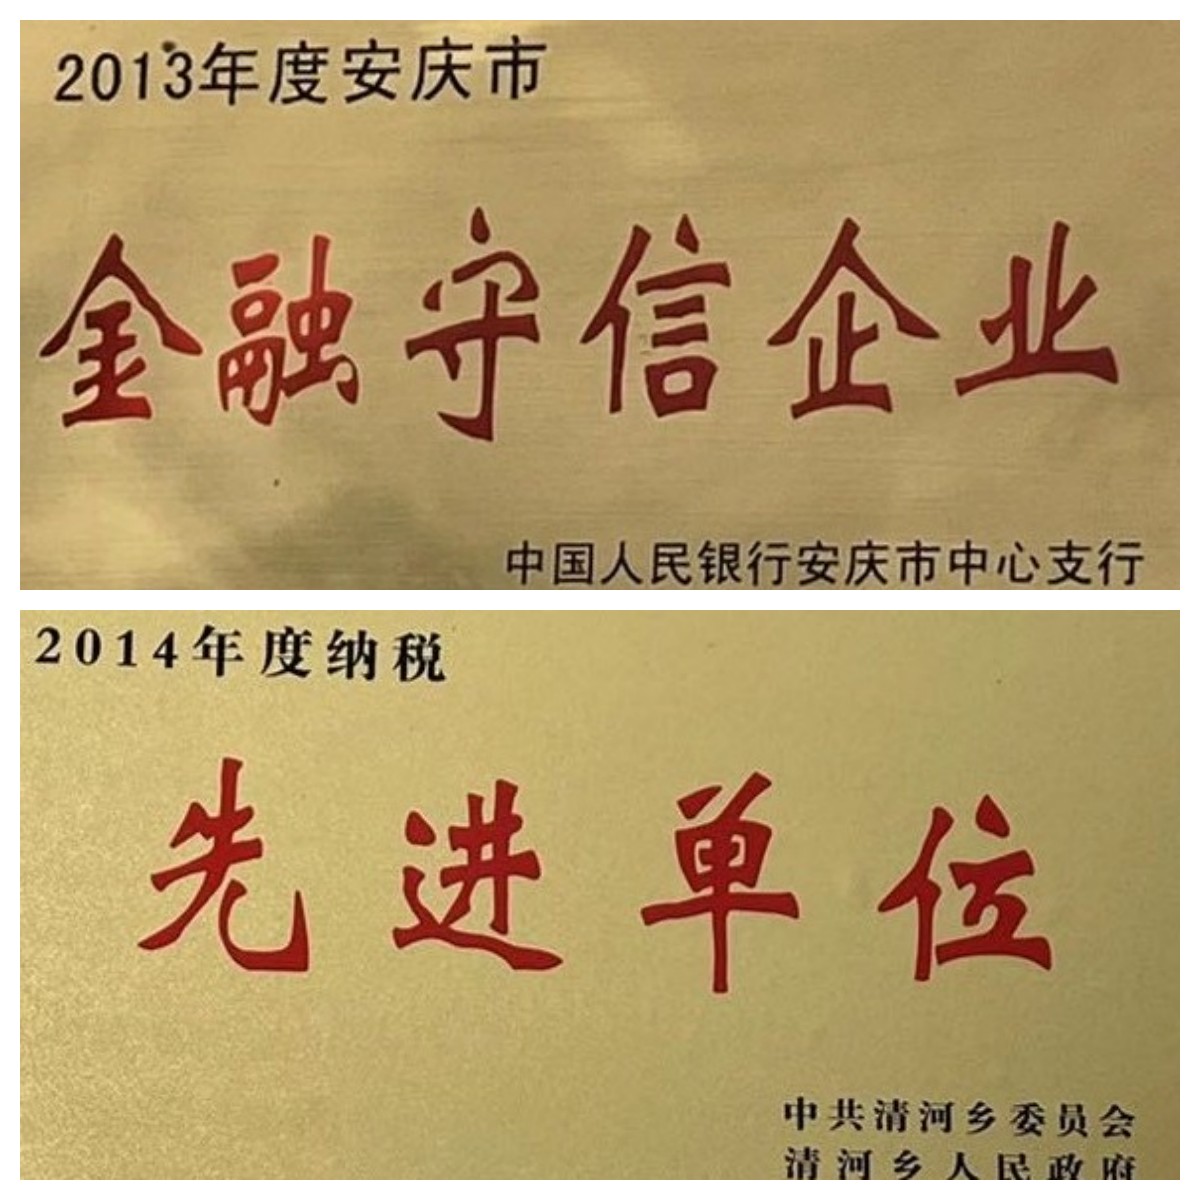 2013年度安庆市
金融守信企业
中国人民银行安庆市中心支行
2014年度纳税
先进单位
中共清河乡委员会
清河乡人民政府